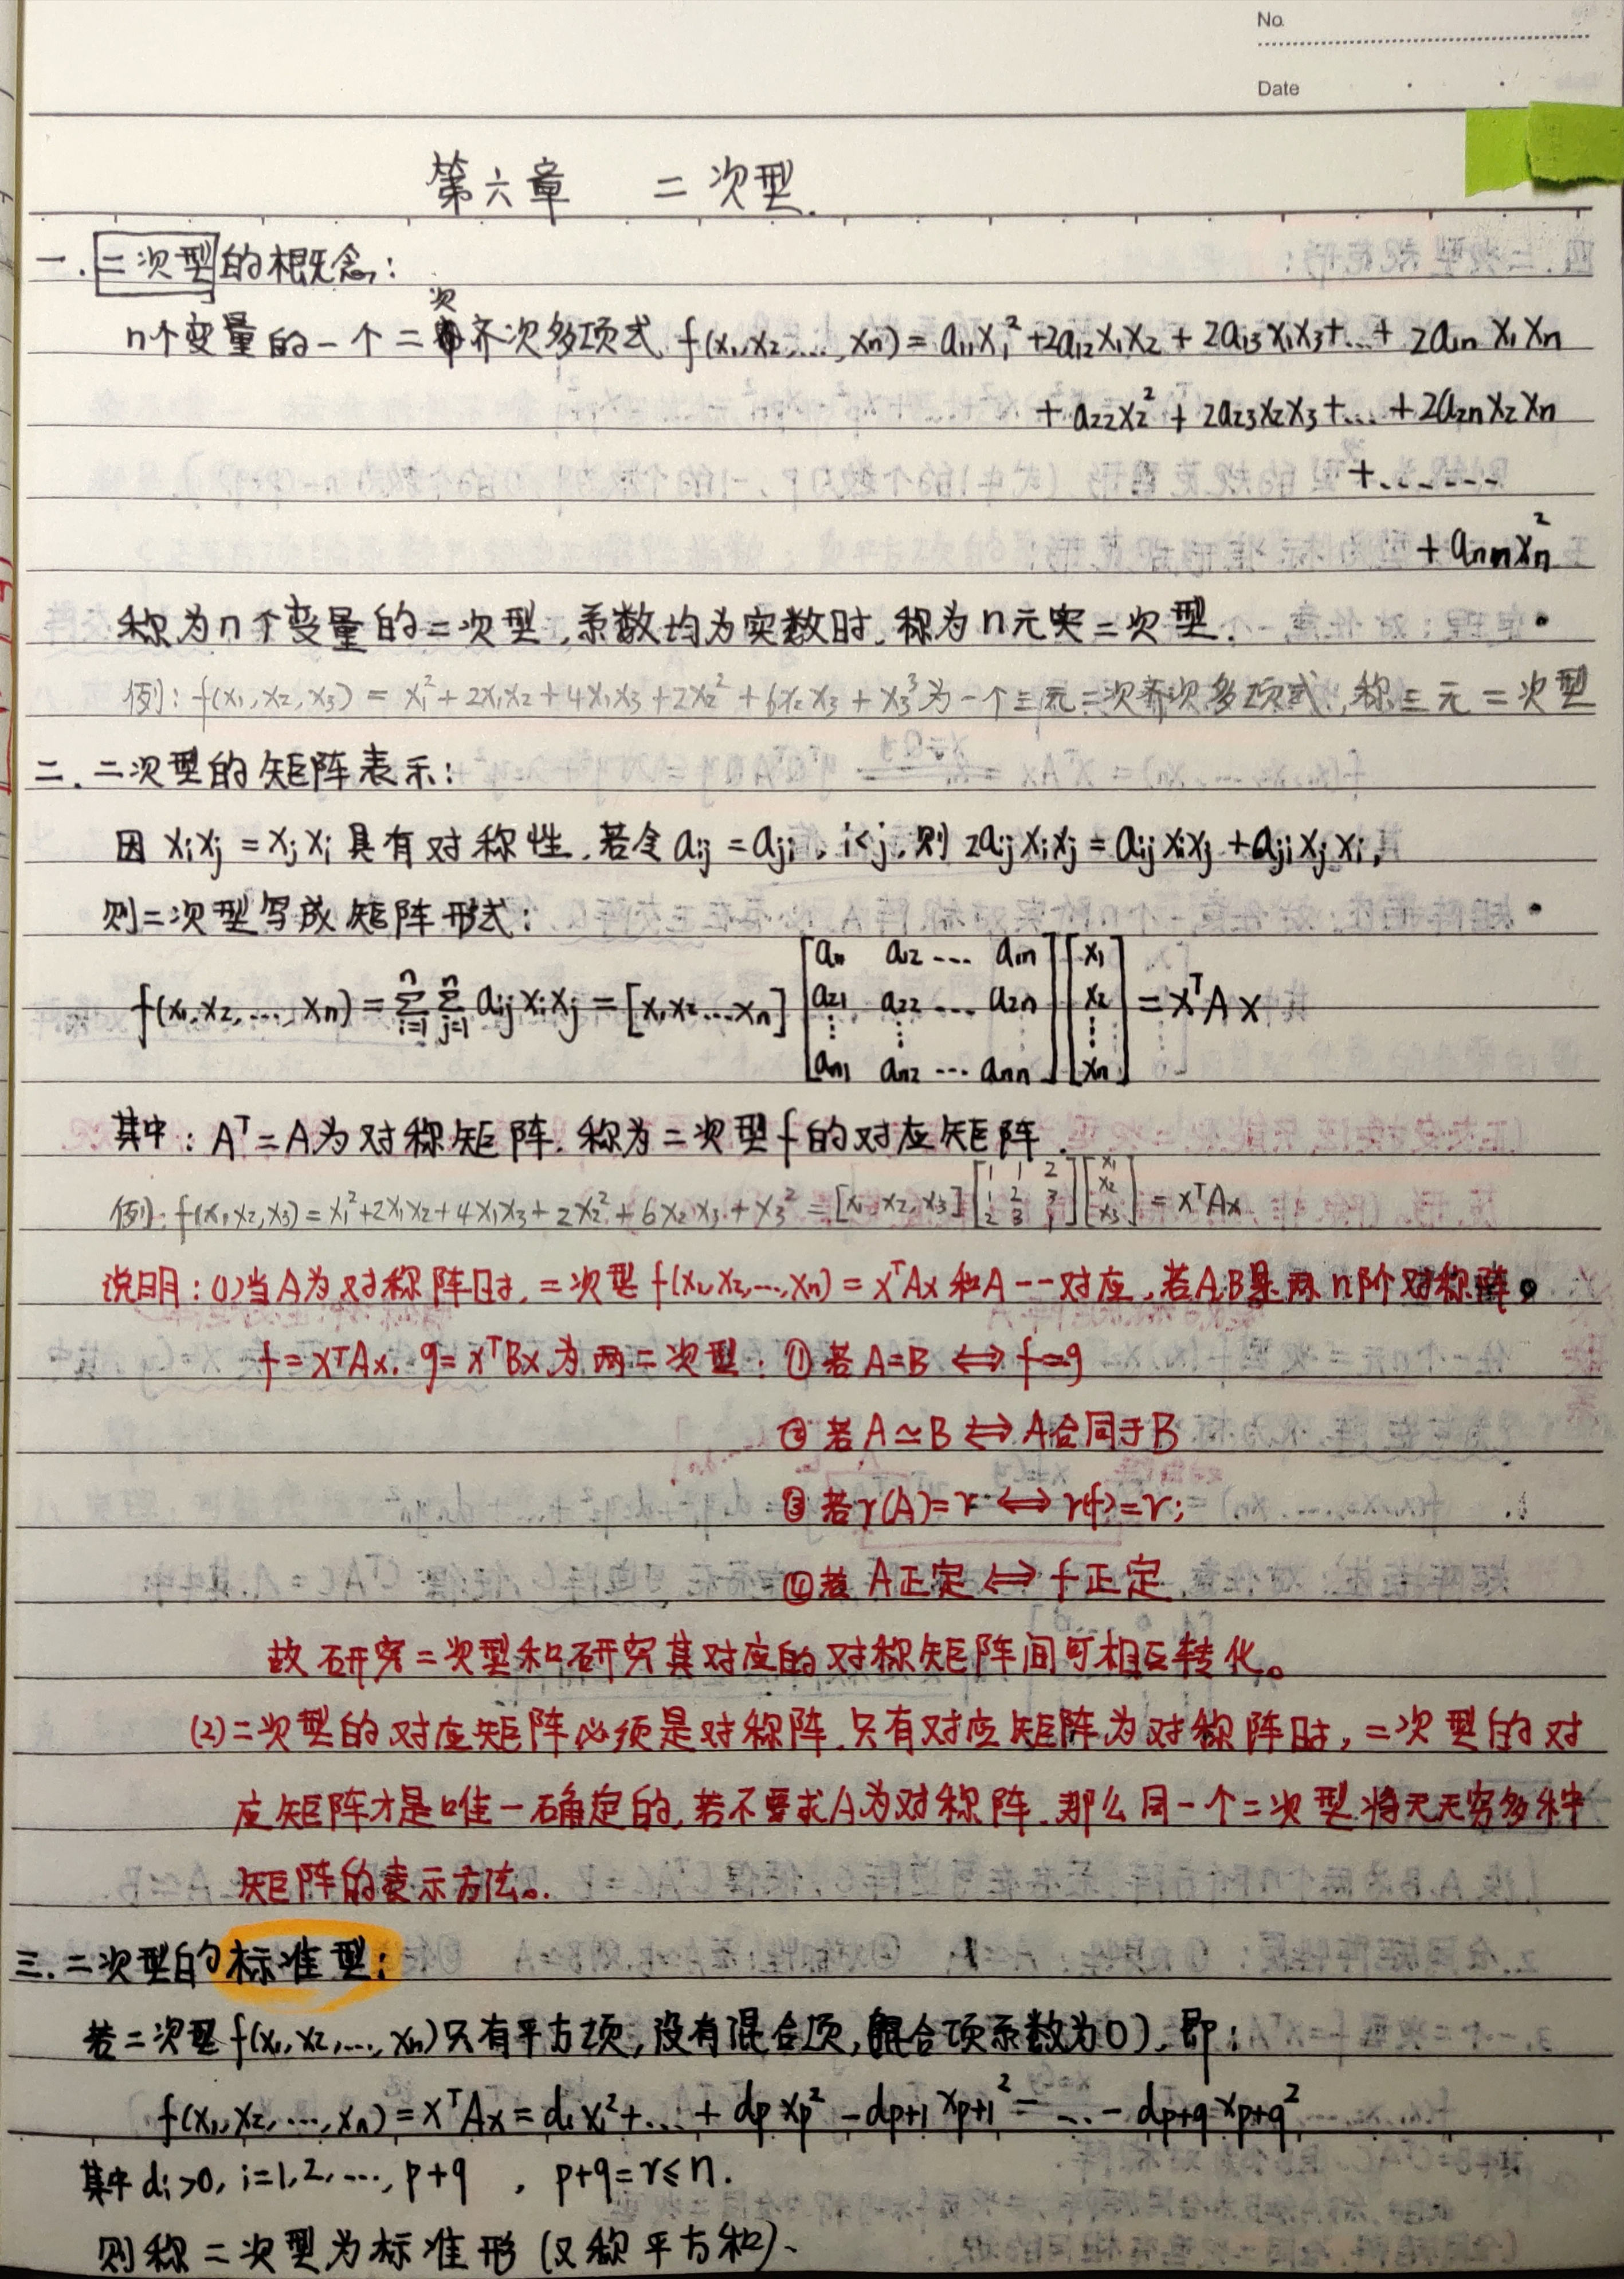 No.
Date
第六章 二次型.
一.二次型的概念:
n个变量的一个二次齐次多项式 f(x₁,x₂,...,xₙ) = a₁₁x₁² + 2a₁₂x₁x₂ + 2a₁₃x₁x₃ + ... + 2a₁ₙx₁xₙ
+ a₂₂x₂² + 2a₂₃x₂x₃ + ... + 2a₂ₙx₂xₙ
+ ......
+ aₙₙxₙ²
称为n个变量的二次型,系数均为实数时,称为n元实二次型.
例: f(x₁,x₂,x₃) = x₁² + 2x₁x₂ + 4x₁x₃ + 2x₂² + 6x₂x₃ + x₃³ 为一个三元二次齐次多项式,称三元二次型
二.二次型的矩阵表示:
因 xᵢxⱼ = xⱼxᵢ 具有对称性.若令 aᵢⱼ = aⱼᵢ, i<j, 则 2aᵢⱼxᵢxⱼ = aᵢⱼxᵢxⱼ + aⱼᵢxⱼxᵢ,
则二次型写成矩阵形式:
f(x₁,x₂,...,xₙ) = ∑ᵢ₌₁ⁿ ∑ⱼ₌₁ⁿ aᵢⱼxᵢxⱼ = [x₁,x₂...xₙ] [a₁₁ a₁₂ ... a₁ₙ; a₂₁ a₂₂ ... a₂ₙ; ⋮ ⋮ ; aₙ₁ aₙ₂ ... aₙₙ] [x₁; x₂; ⋮; xₙ] = xᵀAx
其中: Aᵀ = A为对称矩阵.称为二次型f的对应矩阵.
例: f(x₁,x₂,x₃) = x₁² + 2x₁x₂ + 4x₁x₃ + 2x₂² + 6x₂x₃ + x₃² = [x₁,x₂,x₃] [1 1 2; 1 2 3; 2 3 1] [x₁; x₂; x₃] = xᵀAx
说明: (1)当A为对称阵时,二次型 f(x₁,x₂,...,xₙ) = xᵀAx 和A一一对应,若A,B是两n阶对称阵。
f = xᵀAx. g = xᵀBx 为两二次型: ①若A=B ⇔ f=g
②若A≃B ⇔ A合同于B
③若r(A)=r ⇔ r(f)=r;
④若A正定 ⇔ f正定
故研究二次型和研究其对应的对称矩阵间可相互转化。
(2)二次型的对应矩阵必须是对称阵.只有对应矩阵为对称阵时,二次型的对
应矩阵才是唯一确定的,若不要求A为对称阵.那么同一个二次型将无无穷多种
矩阵的表示方法。
三.二次型的标准型:
若二次型f(x₁,x₂,...,xₙ)只有平方项,没有混合项,混合项系数为0),即:
f(x₁,x₂,...,xₙ) = xᵀAx = d₁x₁² + ... + dₚxₚ² - dₚ₊₁xₚ₊₁² = ... - dₚ₊qxₚ₊q²
其中dᵢ>0, i=1,2,...,p+q , p+q=r≤n.
则称二次型为标准形(又称平方和).